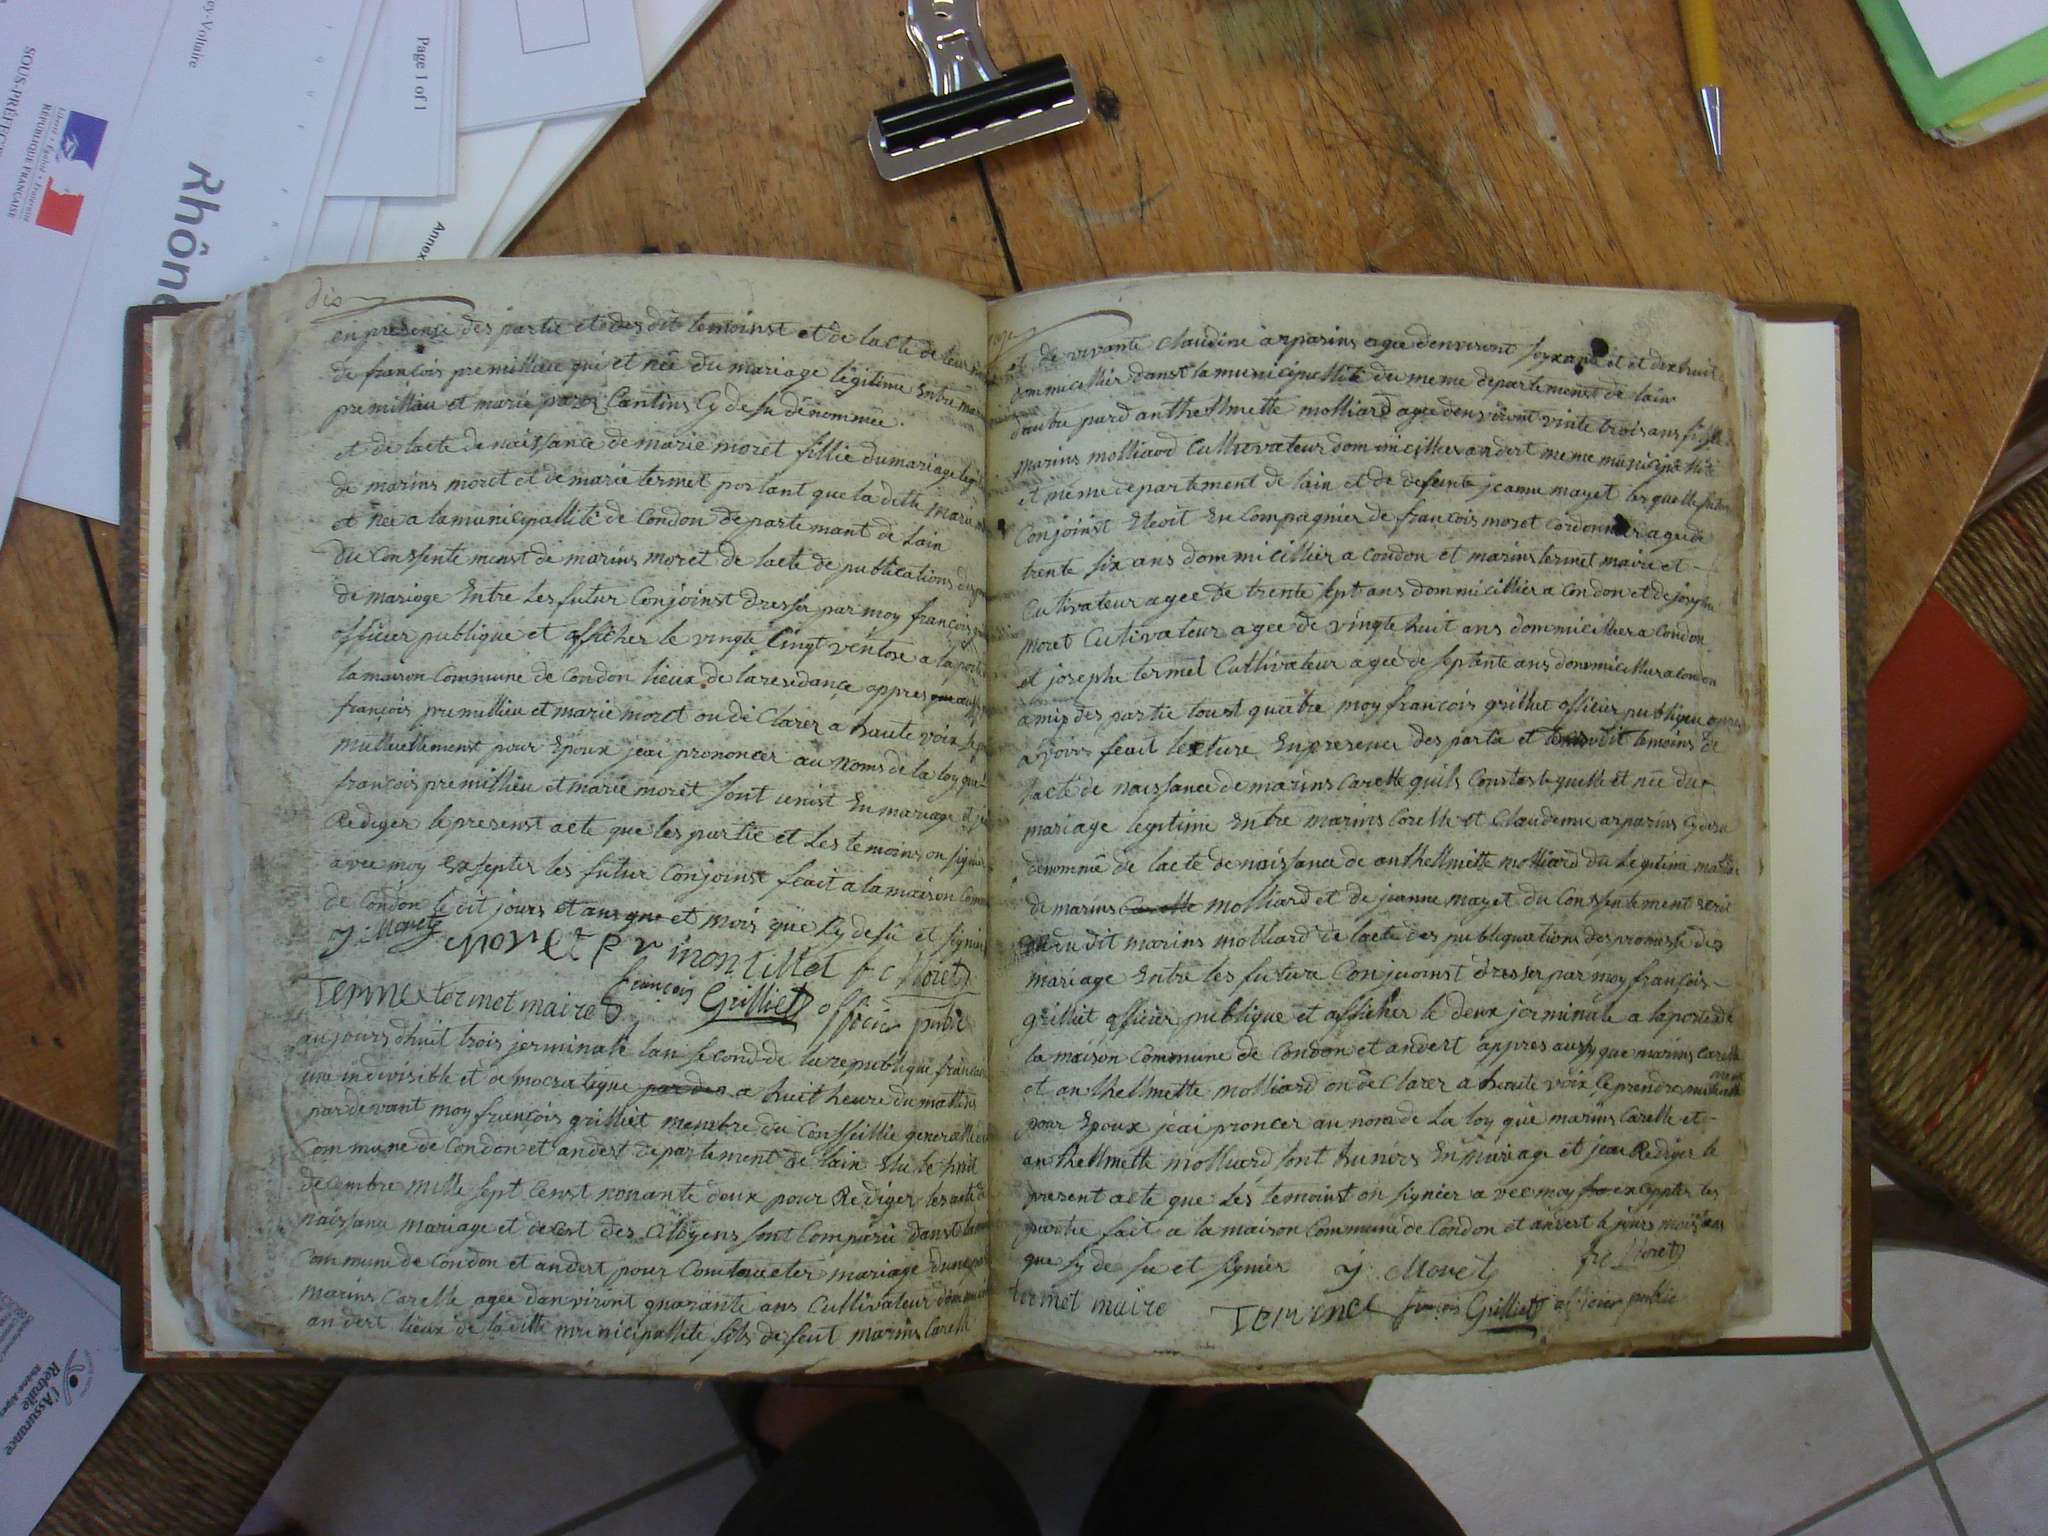 ey-Voltaire
SOUS-PRÉFEC
Liberté • Égalité • Fraternité
RÉPUBLIQUE FRANÇAISE
Page 1 of 1
Rhône
Annex
l'Assurance
Retraite
Rhône-Alpes
dix
en presence des partie et des dit temoinst et de lacte de leur
de françois premillieu qui et née du mariage legitime Entre
premillieu et marie Cantins Cy de su dénommée.
et de lacte de naissance de marie moret fillie du mariage
de marins moret et de marie termet portant que la ditte marie
et née a la municipallité de Condon departemant de Lain
du Consentemenst de marins moret de lacte de publications
de mariage Entre les futur Conjoinst dresser par moy françois
officier publique et afficher le vingte Cinqt ventose a la porte
la maison Commune de Condon lieux de la residance appres
françois premillieu et marie moret on dé Clarer a haute voix
mutuellemenst pour Epoux jeai prononcer au noms de la loy que
françois premillieu et marie moret sont unist En mariage et
Rediger le presenst acte que les partie et les temoins on signier
avec moy Exsepter les futur Conjoinst feait a la maison
de Condon le dit jours et ans que et mois que Cy de su et signier
j: Moret moret pr montillet fc Moret
Terme termet maire françois Grilliet officier public
aujours dhuit trois jerminale lan second de la republique
une indivisible et democratique par den a huit heure du mattins
pardevant moy françois grilliet membre du Conseillie
Commune de Condon et andert departement de lain Elu le
decembre mille sept Censt nonante doux pour Rediger les acte
naissance mariage et des Citoyens sont Comparu danst
Commune de Condon et andert pour mariage
marins Carelle agee danviront quarante ans Cultivateur
andert lieux de la ditte municipallite fils de feut marins Carelle
de vivante Claudine arparins agee denviront et dix huit
dommicillier danst la municipallité du meme departement de lain
dautre pard anthellmette molliard agee denviront vinte trois ans
marins molliard Cultivateur dommicillier andert meme
et meme departement de lain et de defeinte jeanne mayet
Conjoinst Etoit En Compagnies de françois moret Cordonnier agee de
trente six ans dommicillier a Condon et marins termet maire et
Cultivateur agee de trente sept ans dommicillier a Condon et de joseph
moret Cultivateur agee de vingte huit ans dommicillier a Condon
et joseph termet Cultivateur agee de septente ans dommicillier a Condon
amis des partie toust quatre moy françois grilliet officier publique appres
avoirs feait lecture En presence des partie et temoins de
lacte de naissance de marins Carelle et née du
mariage legitime Entre marins Carelle et Claudenne arparins Cy de su
denommé de lacte de naissance de anthellmette molliard du Legitime
de marins Carelle molliard et de jeanne mayet du Consentement
du dit marins molliard de lacte des publiquations des promesse de
mariage Entre les futurs Conjoinst dresser par moy françois
grilliet officier publique et afficher le deux jerminale a la porte de
la maison Commune de Condon et andert appres que marins Carelle
et anthellmette molliard on dé Clarer a haute voix se prendre
pour Epoux jeai proncer au nom de La loy que marins Carelle et
anthellmette molliard sont En mariage et jeai Rediger le
present acte que les temoinst on signier avec moy excepter les
partie fait a la maison Commune de Condon et andert le jours mois ans
que sy de su et signier j. Moret fc Moret
termet maire françois Grilliet officier public